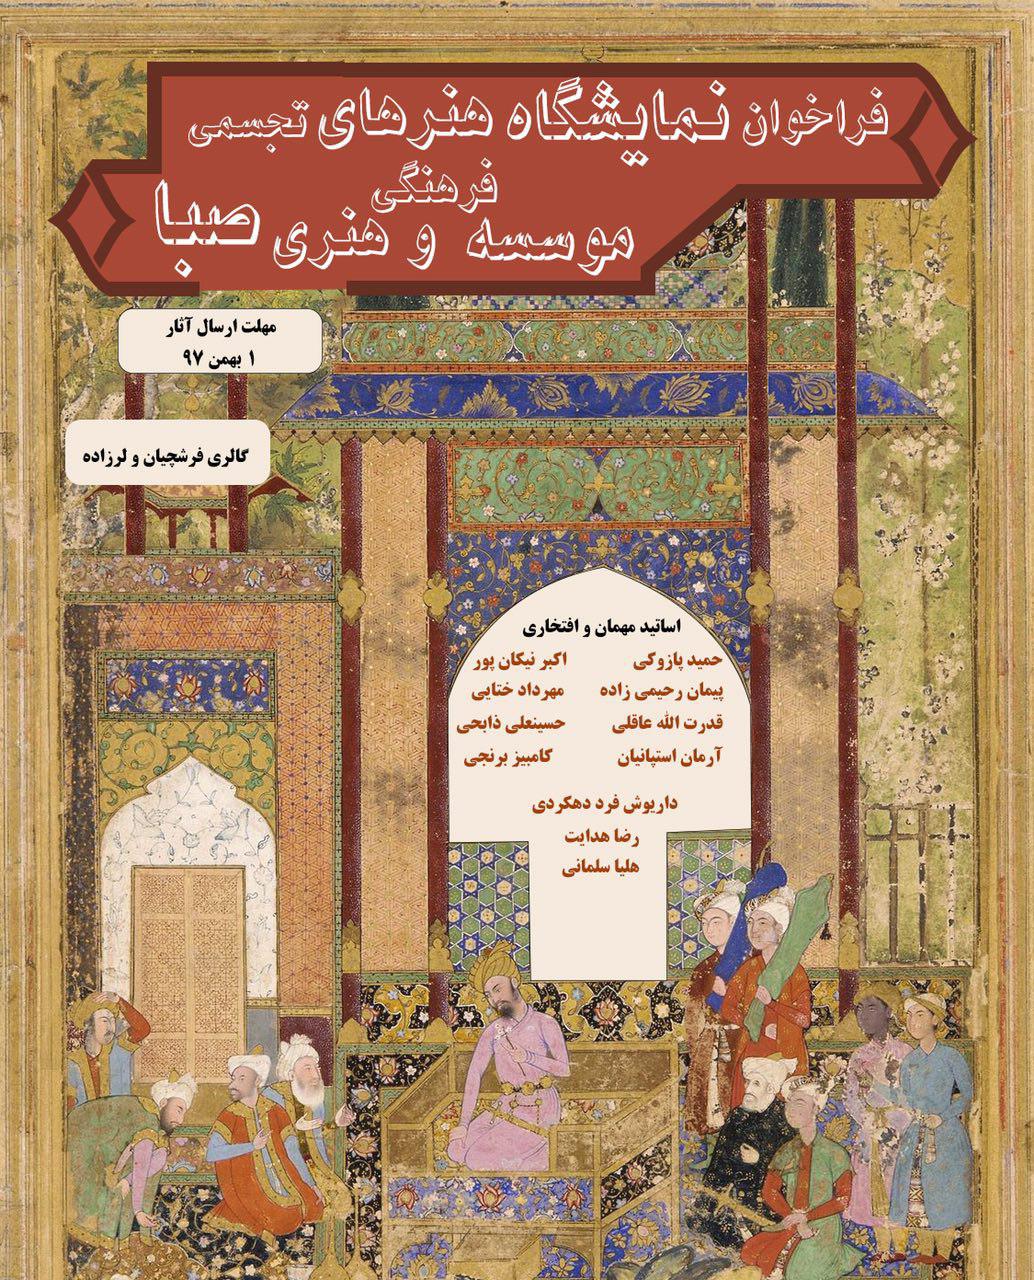 فراخوان نمایشگاه هنرهای تجسمی
موسسه فرهنگی و هنری صبا
مهلت ارسال آثار
۱ بهمن ۹۷
گالری فرشچیان و لرزاده
اساتید مهمان و افتخاری
حمید پازوکی اکبر نیکان پور
پیمان رحیمی زاده مهرداد ختایی
قدرت الله عاقلی حسینعلی ذابحی
آرمان استپانیان کامبیز برنجی
داریوش فرد دهکردی
رضا هدایت
هلیا سلمانی